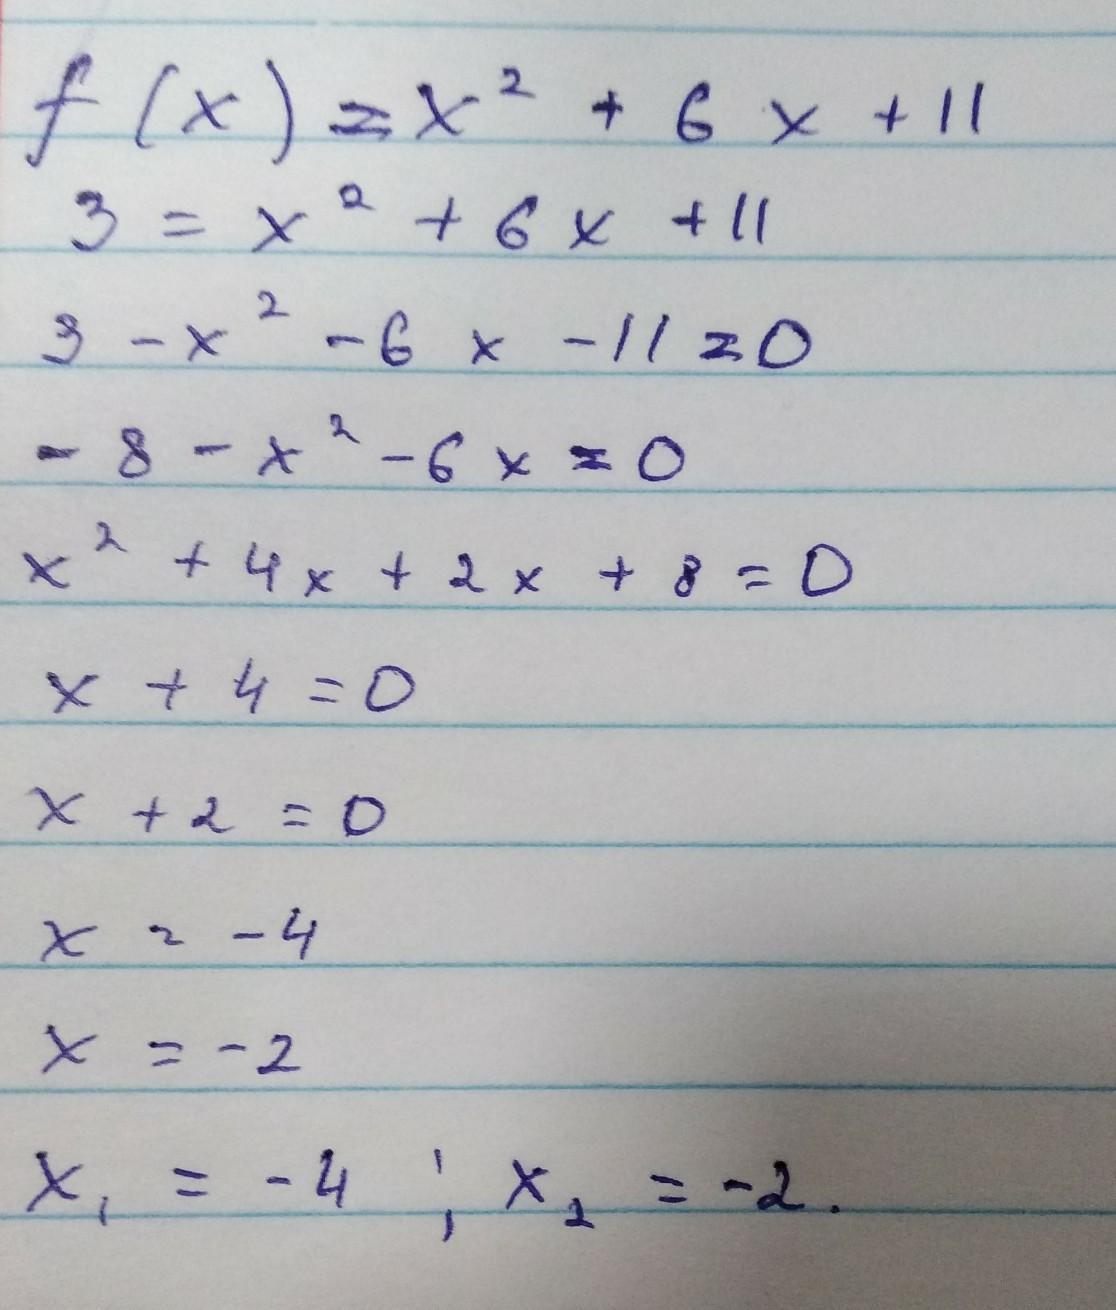 f(x) = x² + 6x + 11
3 = x² + 6x + 11
3 - x² - 6x - 11 = 0
- 8 - x² - 6x = 0
x² + 4x + 2x + 8 = 0
x + 4 = 0
x + 2 = 0
x = -4
x = -2
x₁ = -4 ; x₂ = -2.